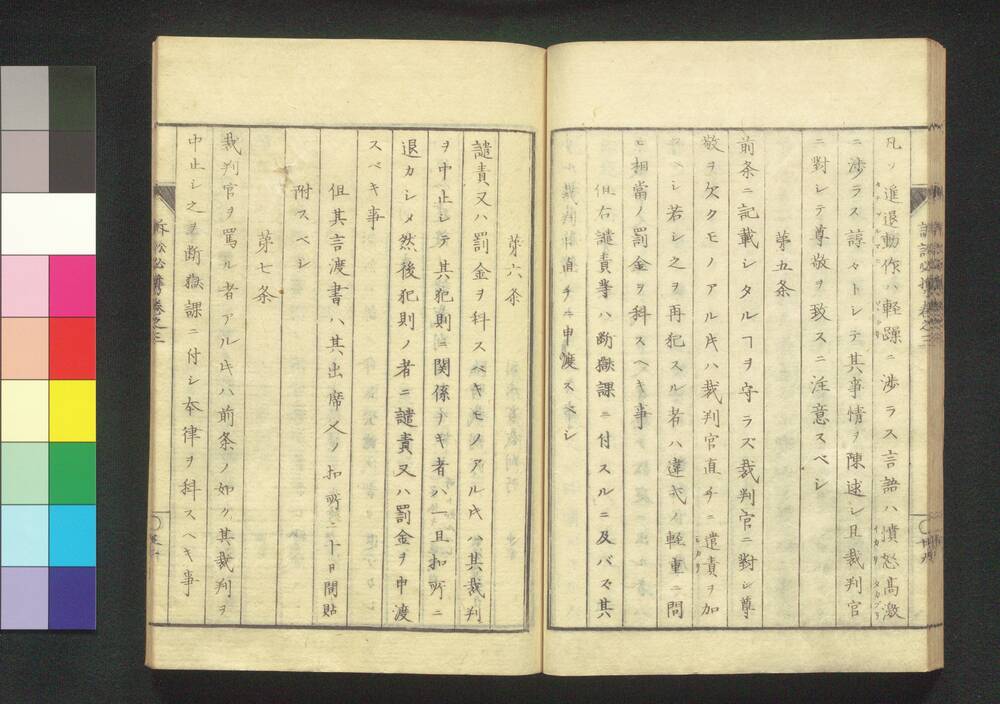 凡ソ進退動作ハ軽躁ニ渉ラス言語ハ憤怒高激
ニ渉ラス諄々トシテ其事情ヲ陳述シ且裁判官
ニ對シテ尊敬ヲ致スニ注意スベシ
第五条
前条ニ記載シタルヿヲ守ラズ裁判官ニ對シ尊
敬ヲ欠クモノアル𪜈ハ裁判官直チニ譴責ヲ加
フベシ若シ之ヲ再犯スル者ハ違式ノ軽重ニ問
ヒ相當ノ罰金ヲ科スヘキ事
但右譴責等ハ断獄課ニ付スルニ及バズ其
裁判官直チニ申渡スベシ
第六条
譴責又ハ罰金ヲ科スベキモノアル𪜈ハ其裁判
ヲ中止シテ其犯則ニ関係ナキ者ハ一旦扣所ニ
退カシメ然後犯則ノ者ニ譴責又ハ罰金ヲ申渡
スベキ事
但其言渡書ハ其出席人ノ扣所ニ十日間貼
附スベシ
第七条
裁判官ヲ罵ル者アル𪜈ハ前条ノ如ク其裁判ヲ
中止シ之ヲ断獄課ニ付シ本律ヲ科スヘキ事
訴訟必携巻之三